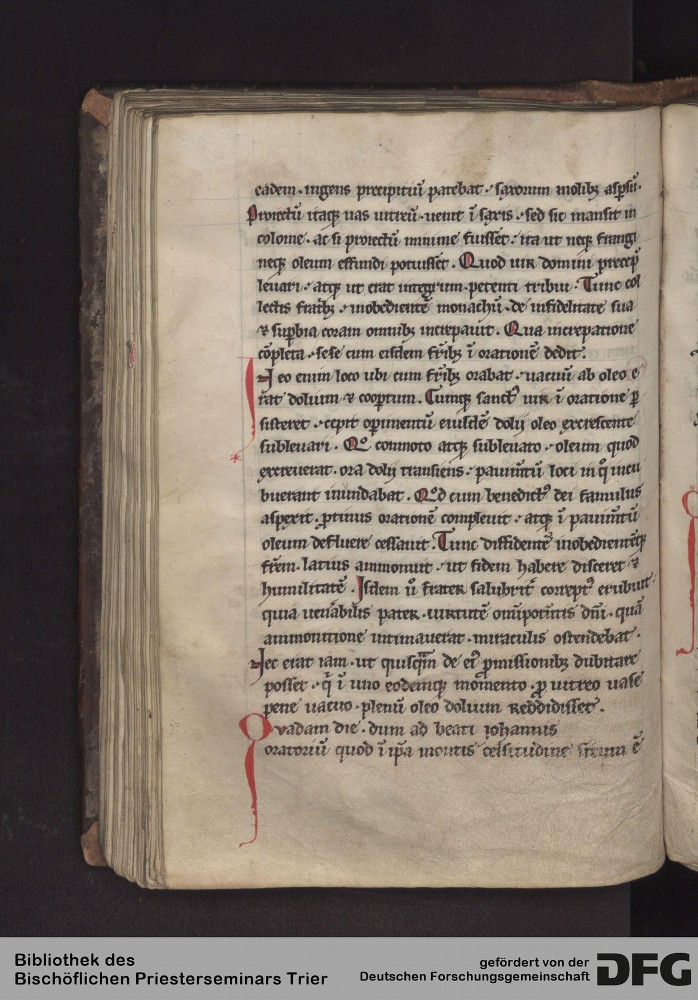 eadem · ingens precipitiũ patebat · saxorum molibꝫ asꝑsũ ·
Proiectũ itaqꝫ uas uitreũ · uenit ĩ saxis · sed sic mansit in
colome · ac si proiectũ minime fuisset · ita ut neqꝫ frangi
neqꝫ oleum effundi potuisset . Quod uir domini precep̄
leuari · atqꝫ ut erat integrum · petenti tribui · Tunc col
lectis fratbꝫ · inobedientẽ monachũ · de infidelitate sua
⁊ suꝑbia coram omnibꝫ increpauit . Qua increpatione
cõpleta · sese cum eisdem fr̃ibꝫ ĩ orationẽ dedit .
I eo enim loco ubi cum fr̃ibꝫ orabat · uacuũ ab oleo e
rat dolium ⁊ coopertum . Cumqꝫ sanctꝰ uir ĩ oratione ꝑ
sisteret · cepit operimentũ eiusdẽ dolij oleo excrescente
subleuari . Qͦ commoto atqꝫ subleuato · oleum quod
excreuerat · ora dolij transiens · pauim̃tũ loci in q̊ incu
buerant inundabat . Qͦd cum benedictꝰ dei famulus
aspexit · ꝓtinus orationẽ compleuit · atqꝫ ĩ pauim̃tũ
oleum defluere cessauit . Tunc diffidentẽ inobedientẽqꝫ
fr̃em · latius ammonuit · ut fidem habere disceret ⁊
humilitatẽ . Isdem u̾ frater salubrit̾ correptꝰ erubuit ·
quia uenabilis pater · uirtutẽ omĩpotentis dñi · quã
ammonitione intimauerat · miraculis ostendebat ·
Nec erat iam · ut quisq̃m de eiꝰ ꝓmissionibꝫ dubitare
posset · q̃ ĩ uno eodemqꝫ momento · ꝓ uitreo uase
pene uacuo · plenũ oleo dolium reddidisset .
Quadam die · dum ad beati iohannis
oratoriũ quod ĩ ip̃a montis celsitudine situm ẽ
Bibliothek des
Bischöflichen Priesterseminars Trier
gefördert von der
Deutschen Forschungsgemeinschaft
DFG